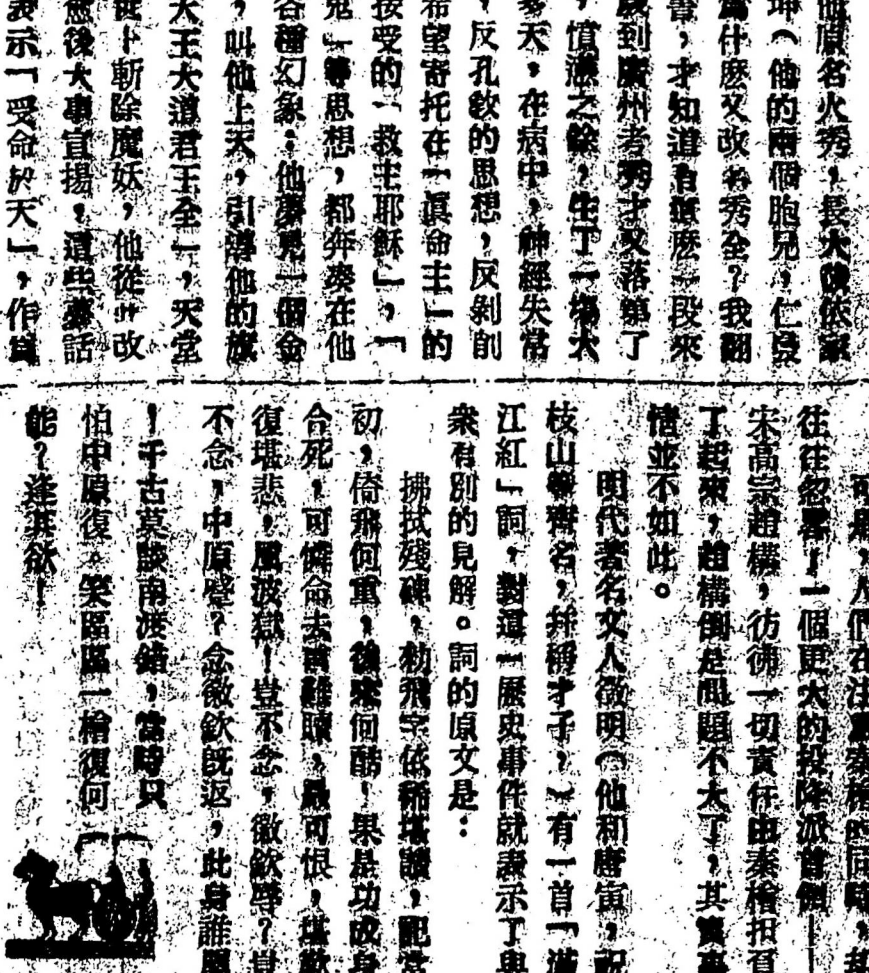 他原名火秀，長大後依家
坤（他的兩個胞兄，仁發
為什麽又改名秀全？我翻
書，才知道有這麽一段來
歲到廣州考秀才又落第了
，憤懣之餘，生了一塲大
多天，在病中，神經失常
，反孔敎的思想，反剝削
希望寄托在「眞命主」的
接受的「救主耶穌」，「
鬼」等思想，都奔凑在他
各種幻象：他夢見一個金
，叫他上天，引導他的旗
天王大道君王全」，天堂
斬除魔妖，他從此改
愈後大事宣揚，這些夢話
表示「受命於天」，作爲
可是，人們在注意秦檜的同時，却
往往忽畧了一個更大的投降派首領——
宋高宗趙構，彷彿一切責任由秦檜担負
了起來，趙構倒是問題不大了，其實事
情並不如此。
明代著名文人徵明（他和唐寅，祝
枝山等齊名，并稱才子，）有一首「滿
江紅」詞，對這一歷史事件就表示了與
衆有別的見解。詞的原文是：
拂拭殘碑，勅飛字依稀堪讀，
初，倚飛何重，後來何酷！果是功成身
合死，可憐命去言難贖，最可恨，堪歎
復堪悲，風波獄！豈不念，徽欽辱？豈
不念，中原蹙？念徽欽旣返，此身誰屬
！千古莫談南渡錯，當時只
怕中原復。笑區區一檜復何
能？逢其欲！